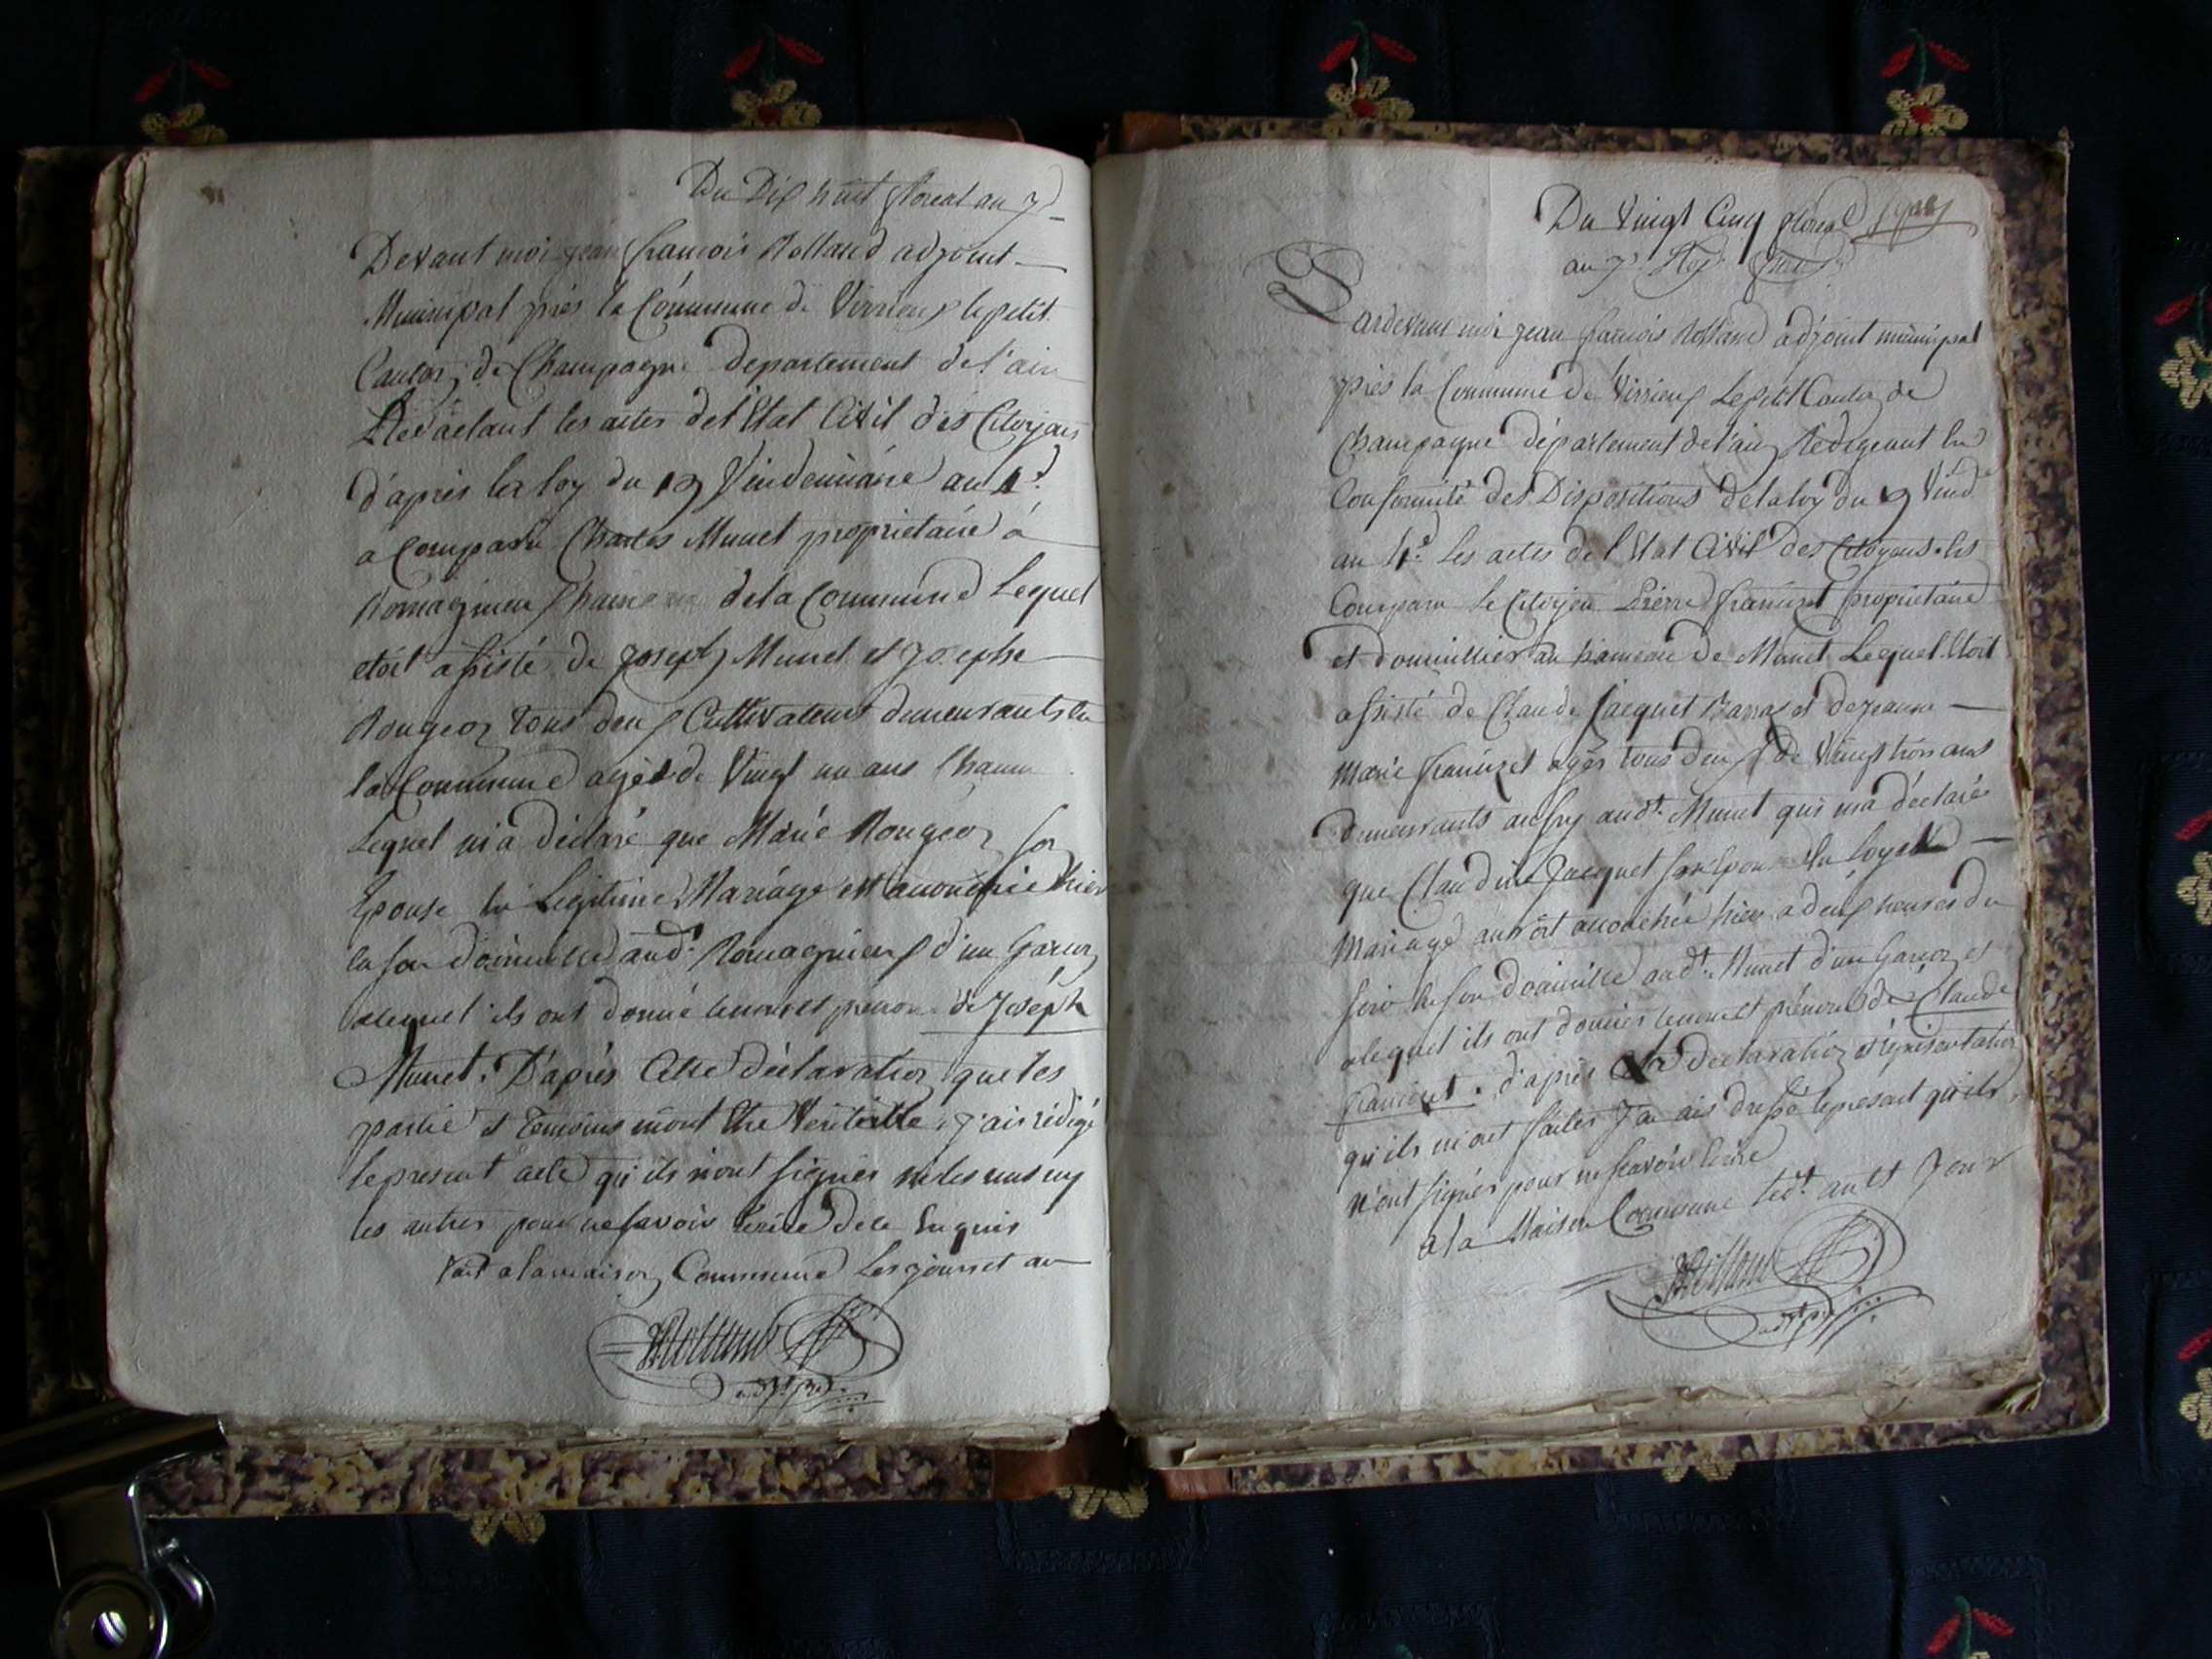 Du Dix huit floreal an 7e
Devant moi jean francois Rolland adjoint
Municipal près la Commune de Virrieux le petit
Canton de Champagne departement de l'ain
les actes de l'Etat Civil des Citoyens
d'après la loy du 19 Vindemiaire an 4e
a Comparu Charles Munet proprietaire à
Romagnieux de la Commune Lequel
etoit assisté de joseph Munet et josephe
Rougeon tous deux Cultivateurs demeurants en
la Commune agés de Vingt un ans
Lequel m'a déclaré que Marie Rougeon son
Epouse en Legitime Mariage est accouchée hier
en son domicille aud. Romagnieux d'un Garcon
alequel ils ont donné le nom et prenom de Joseph
Munet. D'après Cette déclaration que les
partie et temoins m'ont Veritable, j'ais rédigé
le present acte qu'ils n'ont signés ni les uns ny
les autres pour ne savoir Ecrire de ce Enquis
fait a la maison Commune Les jours et an
Rolland
adjt
Du Vingt Cinq floreal
an 7e Rep.
Pardevant moi jean francois Rolland adjoint municipal
près la Commune de Virrieux Le petit Canton de
Champagne département de l'ain Rédigeant En
Conformité des Dispositions de la loy du 19 Vind.
an 4e Les actes de l'Etat Civil des Citoyens. Est
Comparu le Citoyen Pierre proprietaire
et domicillier au hameau de Munet Lequel Etoit
assisté de Claude Jacquet Barras et de jeanne
Marie agés tous deux de Vingt trois ans
demeurants aussy aud. Munet qui m'a déclaré
que Claudine Jacquet son Epouse En Loyale
Mariage auroit accouchée hier a deux heures du
soir en son domicille aud. Munet d'un Garcon et
alequel ils ont donnés le nom et prénom de Claude
d'après déclaration et réprésentation
qu'ils m'ont faites J'en ais dressé le present qu'ils
n'ont signés pour ne scavoir Ecrire
a la Maison Commune led. an et Jour
Rolland
adjt